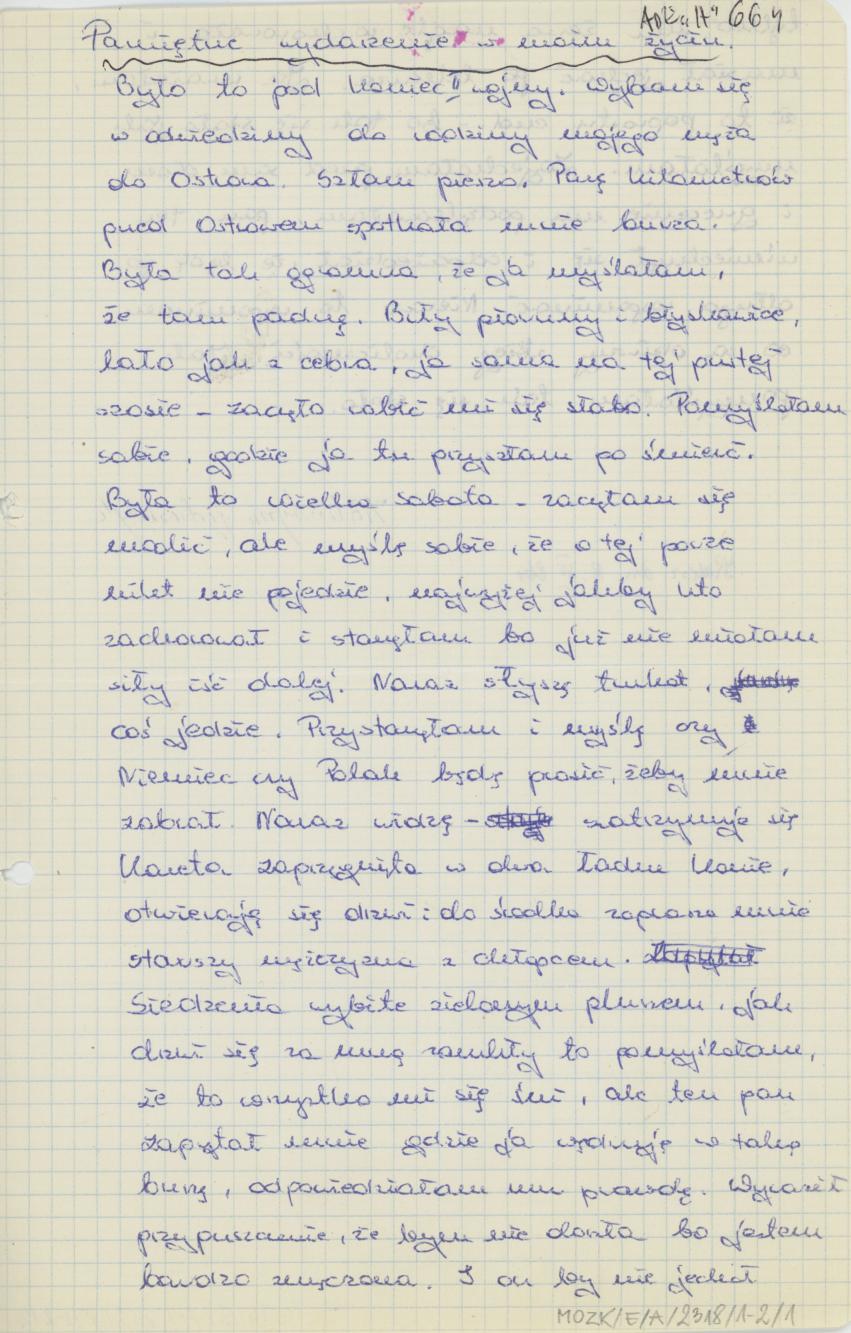 Ank "H" 664
Pamiętne wydarzenie w moim życiu.
Było to pod koniec II wojny. Wybram się
w odwiedziny do rodziny mojego męża
do Ostrowa. Szłam pieszo. Parę kilometrów
przed Ostrowem spotkała mnie burza.
Była tak ogromna, że ja myślałam,
że tam padnę. Biły pioruny i błyskawice,
lało jak z cebra, ja sama na tej pustej
szosie – zaczęło robić mi się słabo. Pomyślałam
sobie, gdzie ja tu przyszłam po śmierć.
Była to wielka sobota – zaczęłam się
modlić, ale myślę sobie, że o tej porze
nikt nie pojedzie, najwyżej jakby kto
zachorował i stanęłam bo już nie miałam
siły iść dalej. Naraz słyszę turkot,
coś jedzie. Przystanęłam i myślę czy
Niemiec czy Polak będę prosić, żeby mnie
zabrał. Naraz widzę – zatrzymuje się
Kareta zaprzęgnięta w dwa ładne konie,
otwierają się drzwi i do środka zaprasza mnie
starszy mężczyzna z chłopcem.
Siedzenia wybite zielonym pluszem. Jak
drzwi się za mną zamkły to pomyślałam,
że to wszystko mi się śni, ale ten pan
zapytał mnie gdzie ja wędruję w taką
burzę, odpowiedziałam mu prawdę. Wyraził
przypuszczenie, że bym nie doszła bo jestem
bardzo zmęczona. I on by nie jechał
MOZK/E/A/2318/1-2/1